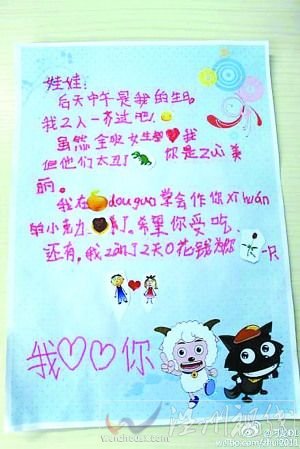 娃娃:
后天中午是我的生日。
我2人一齐过吧!
虽然全班女生都❤我
但他们太丑了 你是Zui美
丽。
我在douguo学会作你xi huán
的小 力 了。希望你爱吃
还有,我 了2天0花钱为你 一只
我♡♡你
温州视线
weibo.com/zhui2011